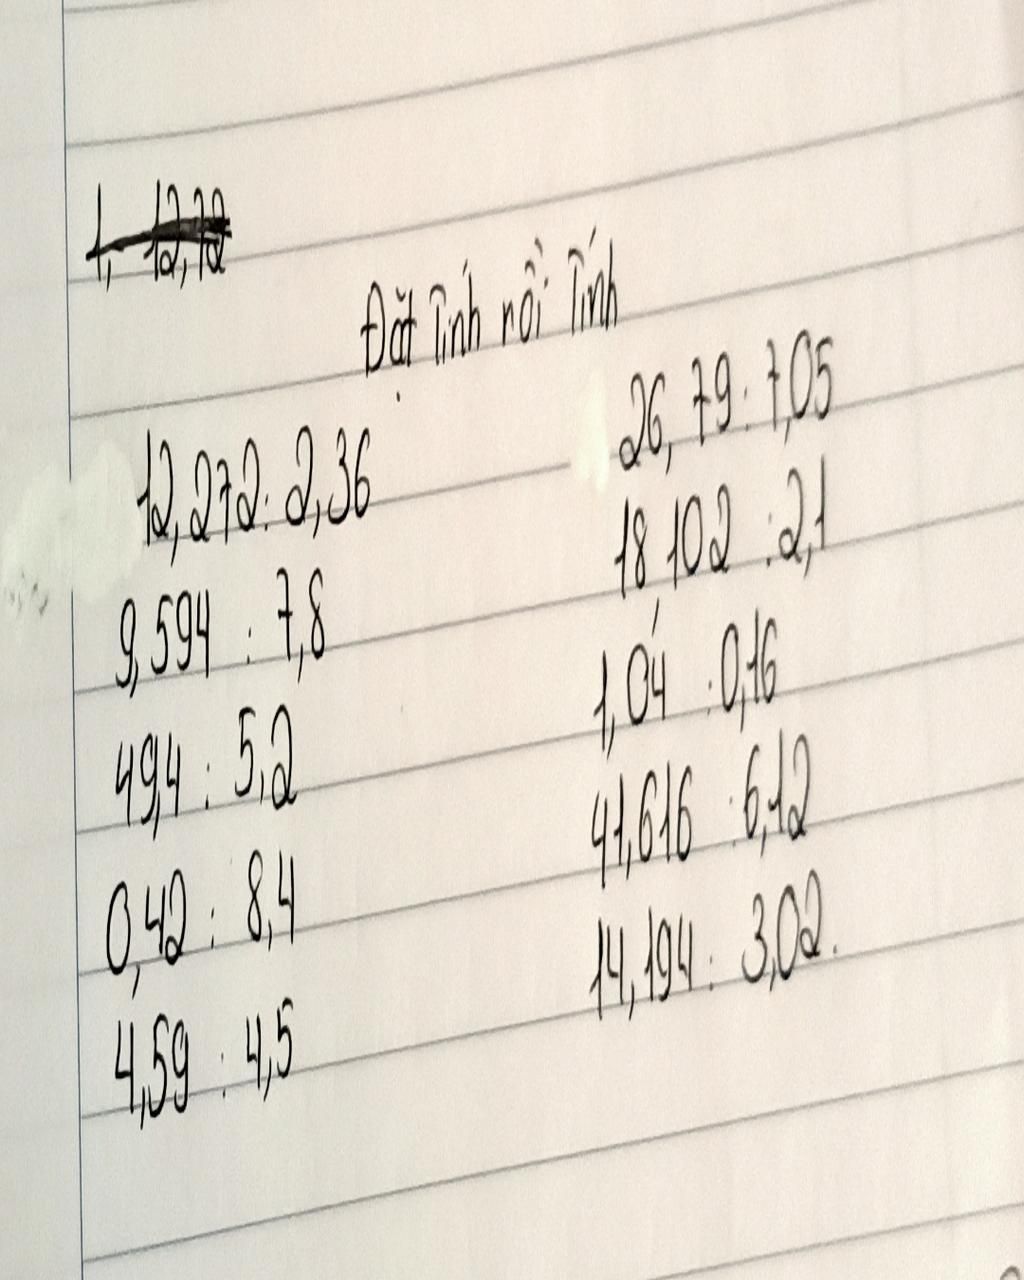 1, 12,72
Đặt tính rồi tính
12,272 : 2,36
9,594 : 7,8
49,4 : 5,2
0,42 : 8,4
4,59 : 4,5
26,79 : 7,05
18 102 : 2,1
1,04 : 0,16
41,616 : 6,12
14,194 : 3,02.